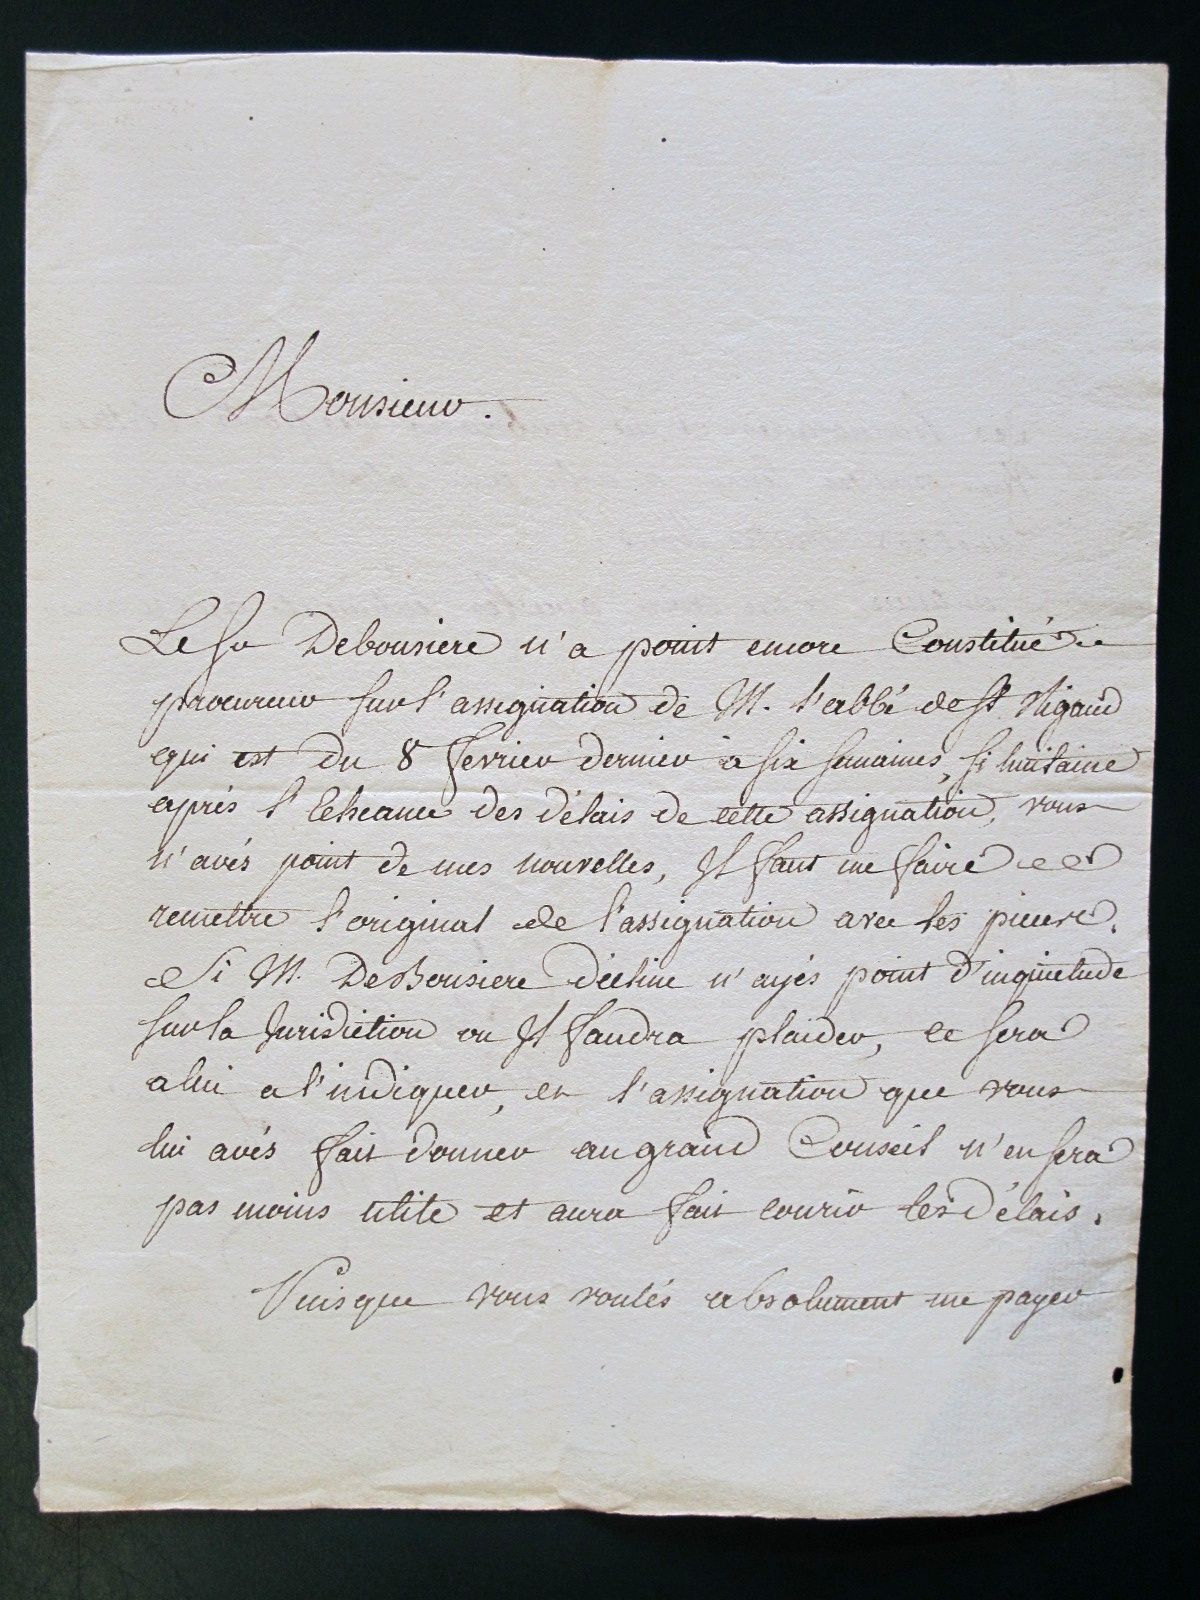 Monsieur.
Le Sr Debousiere n'a point encore Constitué
procureur sur l'assignation de M. l'abbé de St Rigaud
qui est du 8 fevrier dernier a six semaines, si huitaine
aprés l'Echeance des délais de cette assignation, vous
n'avés point de mes nouvelles, Il faut me faire
remettre l'original de l'assignation avec les pieces.
Si M. DeBousiere décline n'ayés point d'inquietude
sur la Jurisdiction ou Il faudra plaider, ce sera
a lui a l'indiquer, et l'assignation que vous
lui avés fait donner au grand Conseil n'en sera
pas moins utile et aura fait courir les délais.
Puisque vous voulés absolument me payer